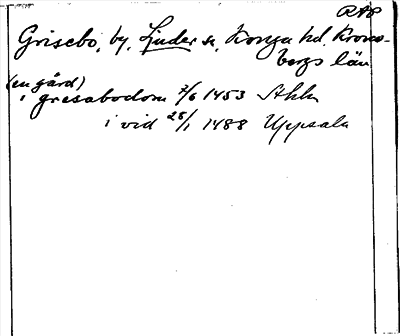 RAP
Grisebo, by, Linder sn, Konga hd. Krono-
bergs län
(en gård)
i gresabodom 7/6 1453 Sthlm
i vid 25/1 1488 Uppsala